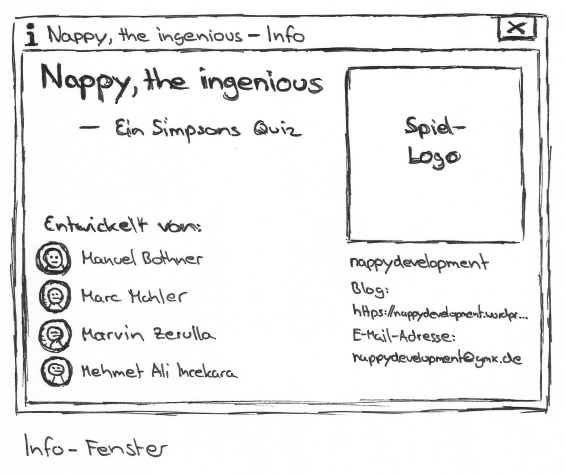 i Nappy, the ingenious – Info X
Nappy, the ingenious
– Ein Simpsons Quiz
Spiel-
Logo
Entwickelt von:
Manuel Bothner
Marc Mahler
Marvin Zerulla
Mehmet Ali Incekara
nappydevelopment
Blog:
https://nappydevelopment.wordpr...
E-Mail-Adresse:
nappydevelopment@gmx.de
Info-Fenster